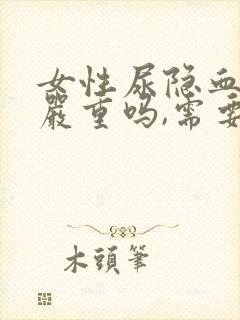 女性尿隐血
嚴重吗,需要
木頭筆